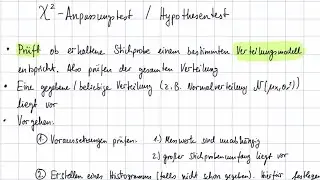 χ²-Anpassungstest / Hypothesentest
• Prüft ob erhaltene Stichprobe einem bestimmten Verteilungsmodell
entspricht. Also prüfen der gesamten Verteilung
• Eine gegebene / beliebige Verteilung (z.B. Normalverteilung N(μx, σ²))
liegt vor
• Vorgehen:
① Voraussetzungen prüfen: 1.) Messwerte sind unabhängig
2.) großer Stichprobenumfang liegt vor
② Erstellen eines Histogramms (falls nicht schon gegeben). Hierfür festlegen